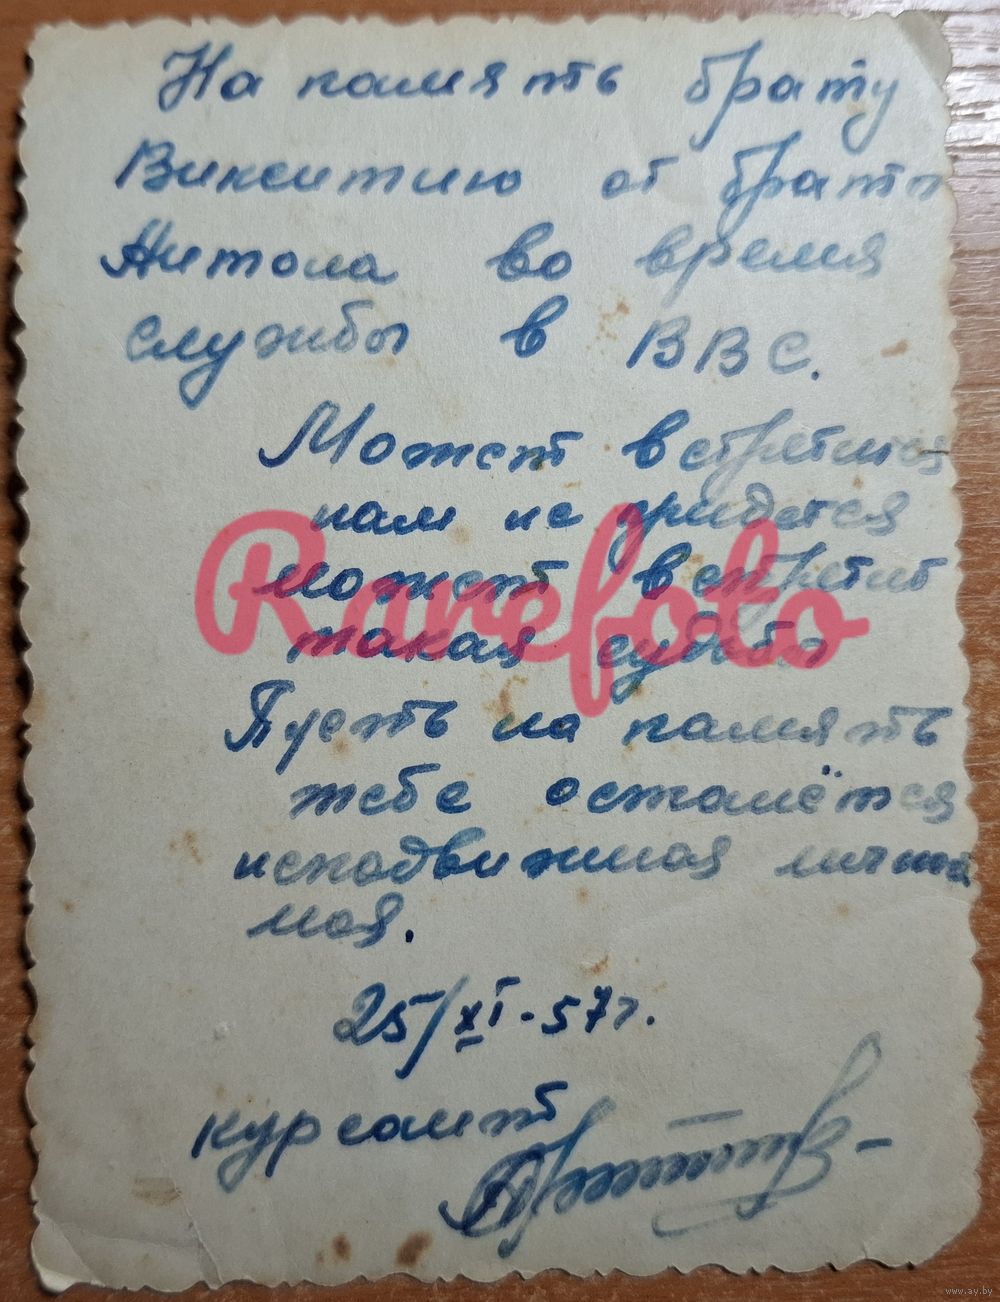 На память брату
Викентию от брата
Антона во время
службы в ВВС.
Может встретится
нам не придется
может встретит
такая судьба
Пусть на память
тебе останётся
неподвижная личность
моя.
25/XI-57г.
курсант
Rarefoto
www.ay.by